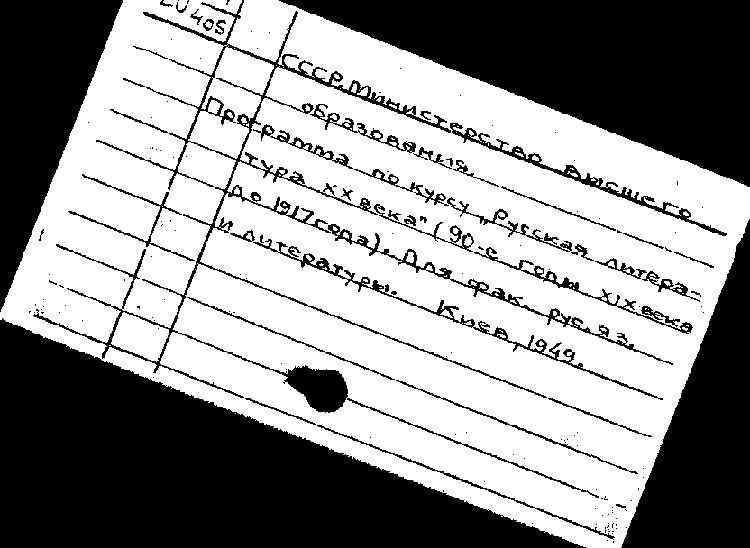 405
СССР. Министерство высшего
образования.
Программа по курсу „Русская литера-
тура XX века" (90-е годы XIX века
до 1917 года). Для фак. рус. яз.
и литературы. Киев, 1949.